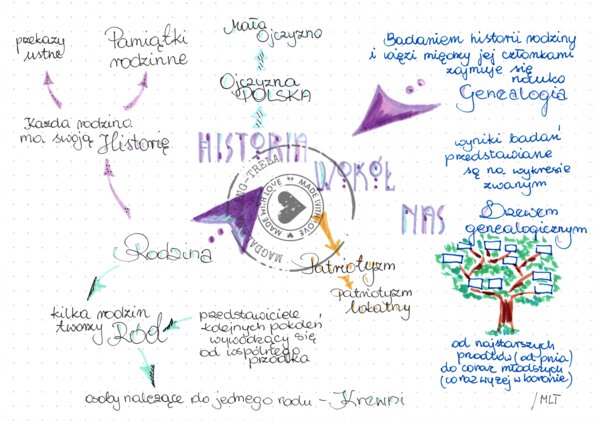 przekazy
ustne
Pamiątki
rodzinne
Każda rodzina
ma swoją Historię
Mała
Ojczyzna
Ojczyzna
POLSKA
HISTORIA
WOKÓŁ
NAS
MADE WITH LOVE
MADE WITH LOVE
Badaniem historii rodziny
i więzi między jej członkami
zajmuje się
nauka
Genealogia
wyniki badań
przedstawiane
są na wykresie
zwanym
Drzewem
genealogicznym
od najstarszych
przodków (od pnia)
do coraz młodszych
(coraz wyżej w koronie)
/MLT
Rodzina
kilka rodzin
tworzy Ród
przedstawiciele
kolejnych pokoleń
wywodzący się
od wspólnego
przodka
osoby należące do jednego rodu - Krewni
Patriotyzm
Patriotyzm
lokalny